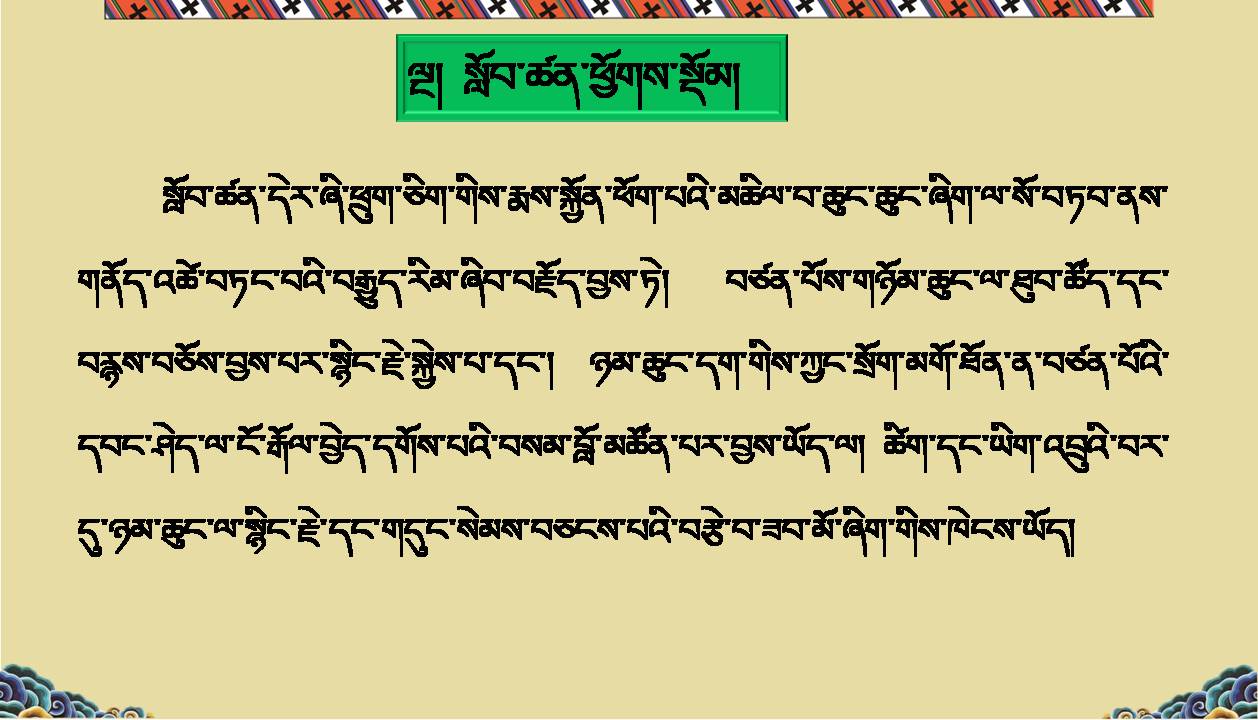 ལྔ། སློབ་ཚན་ཕྱོགས་སྡོམ།
སློབ་ཚན་དེར་ཞི་ཕྲུག་ཅིག་གིས་རྨས་སྐྱོན་ཕོག་པའི་མཆིལ་བ་ཆུང་ཆུང་ཞིག་ལ་སོ་བཏབ་ནས་
གནོད་འཚེ་བཏང་བའི་བརྒྱུད་རིམ་ཞིབ་བརྗོད་བྱས་ཏེ། བཙན་པོས་གཉོམ་ཆུང་ལ་ཐུབ་ཚོད་དང་
བརྙས་བཅོས་བྱས་པར་སྙིང་རྗེ་སྐྱེས་པ་དང་། ཉམ་ཆུང་དག་གིས་ཀྱང་སྲོག་མགོ་ཐོན་ན་བཙན་པོའི་
དབང་ཤེད་ལ་ངོ་རྒོལ་བྱེད་དགོས་པའི་བསམ་བློ་མཚོན་པར་བྱས་ཡོད་ལ། ཚིག་དང་ཡིག་འབྲུའི་བར་
དུ་ཉམ་ཆུང་ལ་སྙིང་རྗེ་དང་གདུང་སེམས་བཅངས་པའི་བརྩེ་བ་ཟབ་མོ་ཞིག་གིས་ཁེངས་ཡོད།